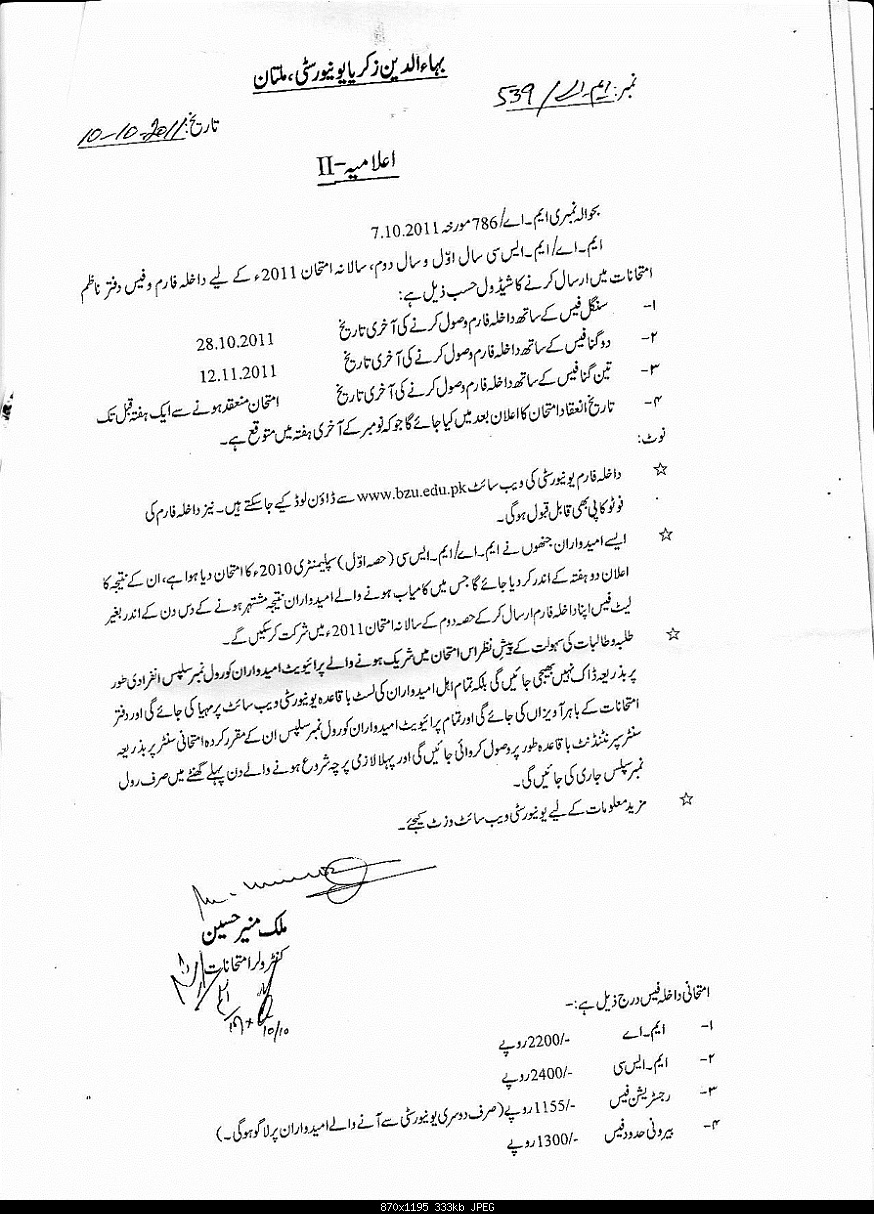 بہاءالدین زکریا یونیورسٹی، ملتان
نمبر: ایم۔اے/539
تاریخ: 10-10-2011
اعلامیہ-II
بحوالہ نمبری ایم۔اے/786 مورخہ 7.10.2011
ایم۔اے/ایم۔ایس سی سال اوّل و سال دوم، سالانہ امتحان 2011ء کے لیے داخلہ فارم و فیس دفتر ناظم
امتحانات میں ارسال کرنے کا شیڈول حسب ذیل ہے:
۱- سنگل فیس کے ساتھ داخلہ فارم وصول کرنے کی آخری تاریخ 28.10.2011
۲- دوگنا فیس کے ساتھ داخلہ فارم وصول کرنے کی آخری تاریخ 12.11.2011
۳- تین گنا فیس کے ساتھ داخلہ فارم وصول کرنے کی آخری تاریخ امتحان منعقد ہونے سے ایک ہفتہ قبل تک
۴- تاریخ انعقاد امتحان کا اعلان بعد میں کیا جائے گا جو کہ نومبر کے آخری ہفتہ میں متوقع ہے۔
نوٹ:
☆ داخلہ فارم یونیورسٹی کی ویب سائٹ www.bzu.edu.pk سے ڈاؤن لوڈ کیے جاسکتے ہیں۔ نیز داخلہ فارم کی
فوٹو کاپی بھی قابل قبول ہوگی۔
☆ ایسے امیدواران جنھوں نے ایم۔اے/ایم۔ایس سی (حصہ اوّل) سپلیمنٹری 2010ء کا امتحان دیا ہوا ہے، ان کے نتیجہ کا
اعلان دو ہفتہ کے اندر کر دیا جائے گا جس میں کامیاب ہونے والے امیدواران نتیجہ مشتہر ہونے کے دس دن کے اندر بغیر
لیٹ فیس اپنا داخلہ فارم ارسال کرکے حصہ دوم کے سالانہ امتحان 2011ء میں شرکت کرسکیں گے۔
☆ طلبہ و طالبات کی سہولت کے پیش نظر اس امتحان میں شریک ہونے والے پرائیویٹ امیدواران کو رول نمبر سلپس انفرادی طور
پر بذریعہ ڈاک نہیں بھیجی جائیں گی بلکہ تمام اہل امیدواران کی لسٹ باقاعدہ یونیورسٹی ویب سائٹ پر مہیا کی جائے گی اور دفتر
امتحانات کے باہر آویزاں کی جائے گی اور تمام پرائیویٹ امیدواران کو رول نمبر سلپس ان کے مقرر کردہ امتحانی سنٹر پر بذریعہ
سنٹر سپرنٹنڈنٹ باقاعدہ طور پر وصول کروائی جائیں گی اور پہلا لازمی پرچہ شروع ہونے والے دن پہلے گھنٹے میں صرف رول
نمبر سلپس جاری کی جائیں گی۔
☆ مزید معلومات کے لیے یونیورسٹی ویب سائٹ وزٹ کیجئے۔
ملک منیر حسین
کنٹرولر امتحانات
10/10
امتحانی داخلہ فیس درج ذیل ہے:-
۱- ایم۔اے 2200/- روپے
۲- ایم۔ایس سی 2400/- روپے
۳- رجسٹریشن فیس 1155/- روپے (صرف دوسری یونیورسٹی سے آنے والے امیدواران پر لاگو ہوگی۔)
۴- بیرونی حدود فیس 1300/- روپے
870x1195 333kb JPEG